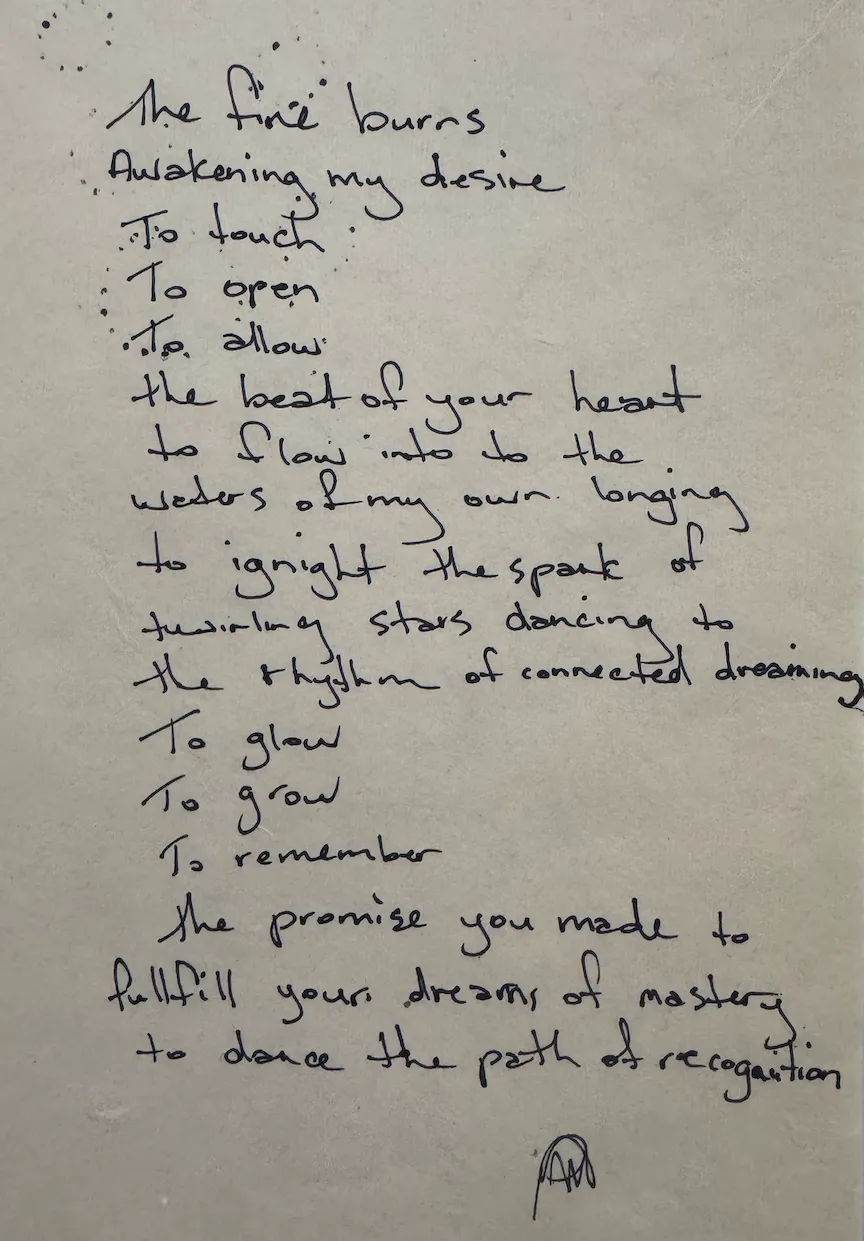 The fire burns
Awakening my desire
To touch
To open
To allow
the beat of your heart
to flow into to the
waters of my own longing
to ignight the spark of
twirling stars dancing to
the rhythm of connected dreaming
To glow
To grow
To remember
the promise you made to
fullfill your dreams of mastery
to dance the path of recognition